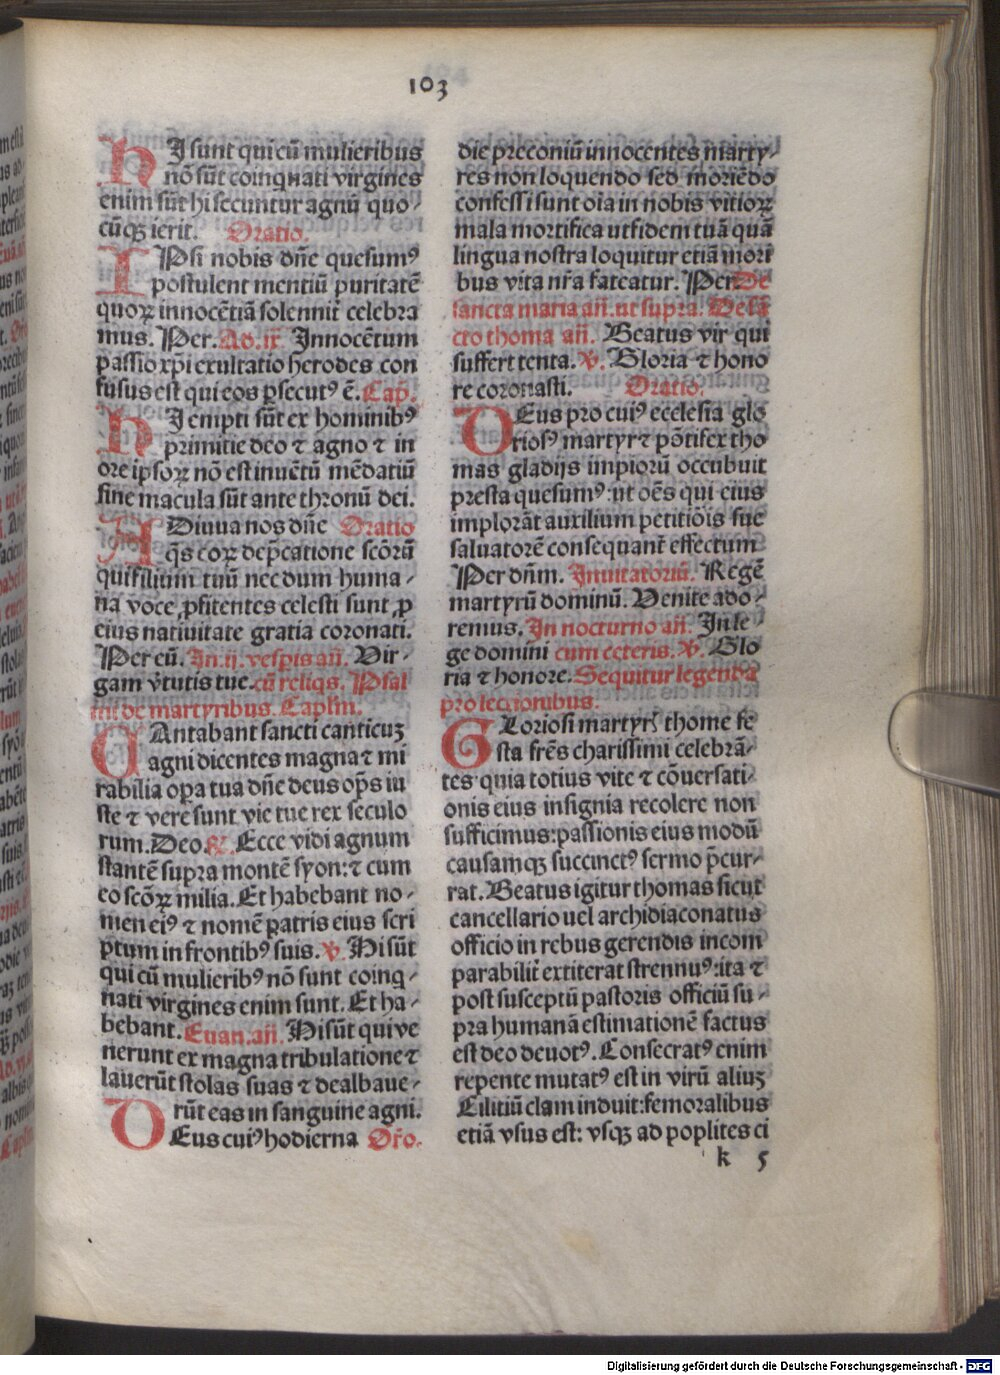 103
HI sunt qui cū mulieribus
nō sūt coinquati virgines
enim sūt hi secuntur agnū quo⸗
cūqꝫ ierit. Oratio.
IPsi nobis dn̄e quesumꝰ
postulent mentiū puritatē
quoꝝ innocētiā solennit̄ celebra
mus. Per. Ad.ix. Innocētum
passio xp̄i exultatio herodes con
fusus est qui eos ꝑsecutꝰ ē. Cap̄.
HI empti sūt ex hominibꝰ
primitie deo ⁊ agno ⁊ in
ore ipsoꝝ nō est inuētū mēdatiū
sine macula sūt ante thronū dei.
ADiuua nos dn̄e Oratio
q̄s eoꝝ dep̄catione scōrū
qui filium tuū necdum huma⸗
na voce ꝓfitentes celesti sunt ꝓ
eius natiuitate gratia coronati.
Per eū. In.ij. vesꝑis an̄. Vir⸗
gam v̄tutis tue. cū reliqs. Psal
mi de martyribus. Caplm̄.
CAntabant sancti canticuꝫ
agni dicentes magna ⁊ mi
rabilia oꝑa tua dn̄e deus op̄s iu
ste ⁊ vere sunt vie tue rex seculo
rum. Deo. R. Ecce vidi agnum
stantē supra montē syon: ⁊ cum
eo scōꝝ milia. Et habebant no⸗
men eiꝰ ⁊ nomē patris eius scri
ptum in frontibꝰ suis. V. Hi sūt
qui cū mulieribꝰ nō sunt coinq⸗
nati virgines enim sunt. Et ha⸗
bebant. Euan. an̄. Hi sūt qui ve
nerunt ex magna tribulatione ⁊
lauerūt stolas suas ⁊ dealbaue⸗
rūt eas in sanguine agni.
DEus cuiꝰ hodierna Or̄o.
die preconiū innocentes marty⸗
res non loquendo sed moriēdo
confessi sunt oīa in nobis vitioꝝ
mala mortifica ut fidem tuā quā
lingua nostra loquitur etiā mori
bus vita nr̄a fateatur. Per De
sancta maria an̄. ut supra. De sā
cto thoma an̄. Beatus vir qui
suffert tenta. V. Gloria ⁊ hono
re coronasti. Oratio.
DEus pro cuiꝰ ecclesia glo
riosꝰ martyr ⁊ pōtifex tho
mas gladijs impiorū occubuit
presta quesumꝰ: ut oēs qui eius
implorāt auxilium petitiōis sue
saluatorē consequant̄ effectum
Per dn̄m. Inuitatoriū. Regē
martyrū dominū. Venite ado⸗
remus. In nocturno an̄. In le⸗
ge domini cum ceteris. V. Glo
ria ⁊ honore. Sequitur legenda
pro lectionibus.
GLoriosi martyrꝭ thome fe
sta frēs charissimi celebrā⸗
tes quia totius vite ⁊ cōuersati⸗
onis eius insignia recolere non
sufficimus: passionis eius modū
causamqꝫ succinctꝰ sermo p̄cur⸗
rat. Beatus igitur thomas sicut
cancellario uel archidiaconatus
officio in rebus gerendis incom
parabilit̄ extiterat strennuꝰ: ita ⁊
post susceptū pastoris officiū su⸗
pra humanā estimationē factus
est deo deuotꝰ. Consecratꝰ enim
repente mutatꝰ est in virū aliuꝫ
Cilitiū clam induit: femoralibus
etiā vsus est: vsqꝫ ad poplites ci
k 5
Digitalisierung gefördert durch die Deutsche Forschungsgemeinschaft - DFG